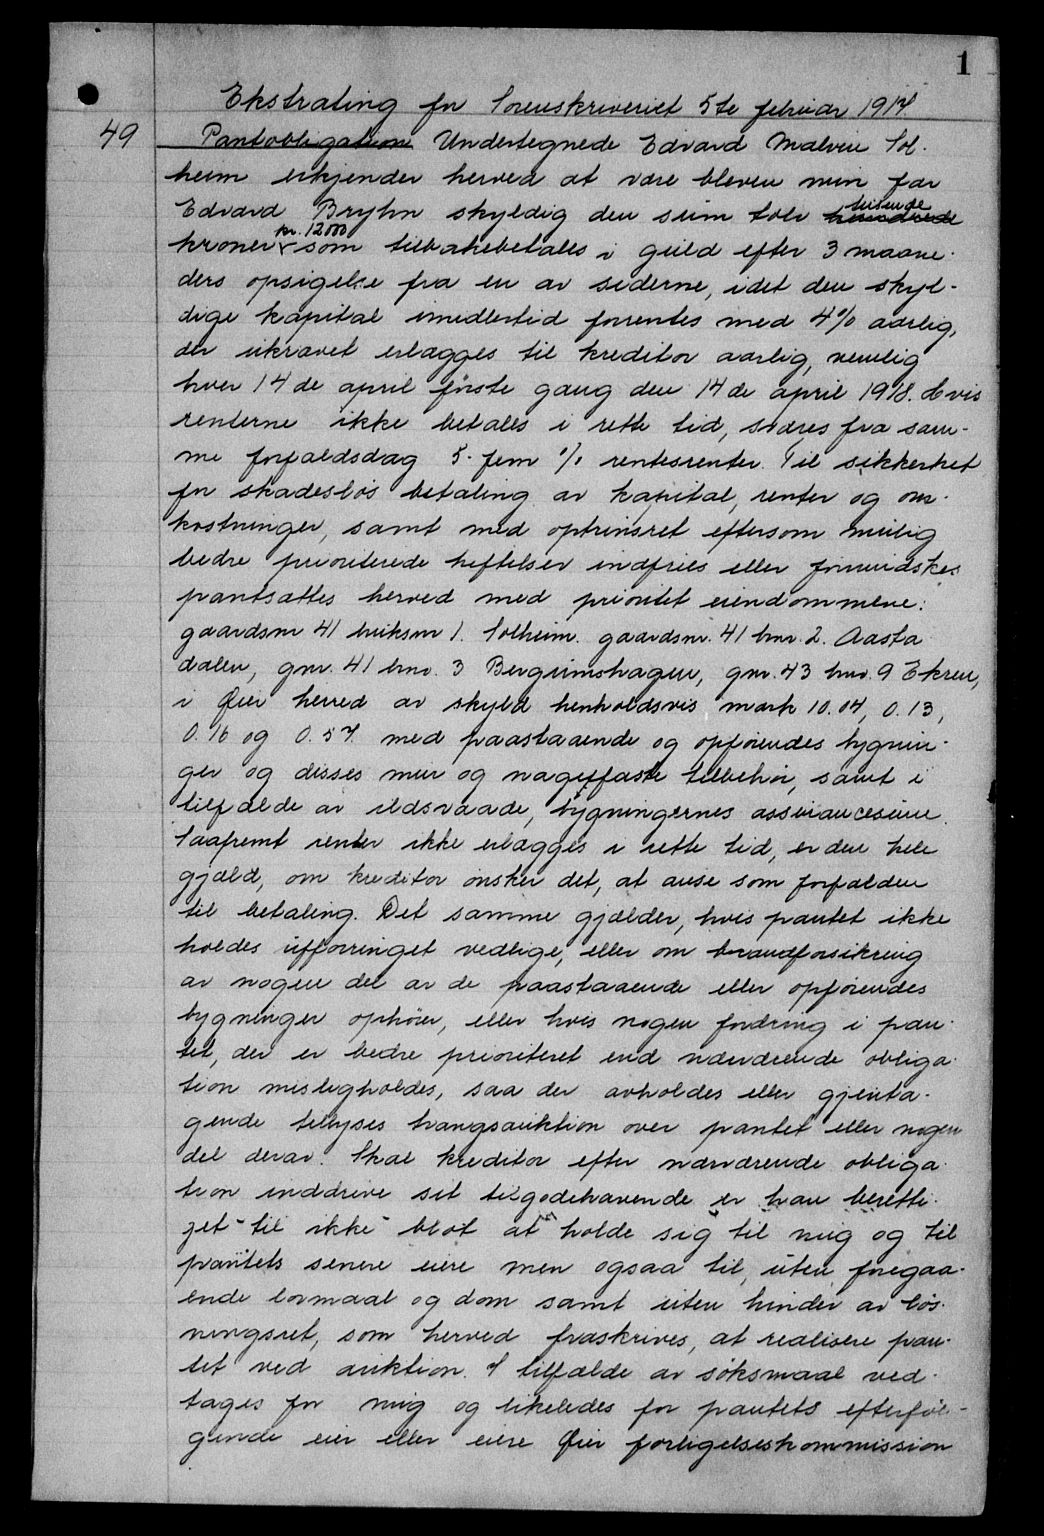 1
Ekstrating for Sorenskriveriet 5te februar 1917.
49 Pantobligation Undertegnede Edvard Malvin Sol-
heim erkjender herved at være bleven min far
Edvard Bryhn skyldig den sum tolv hundrede tusende
kroner kr. 12000 som tilbakebetales i guld efter 3 maane-
ders opsigelse fra en av siderne, idet den skyl-
dige kapital imidlertid forrentes med 4% aarlig,
der ukrævet erlægges til kreditor aarlig, nemlig
hver 14de april første gang den 14de april 1918. Hvis
renterne ikke betales i rette tid, svares fra sam-
me forfaldsdag 5-fem % rentesrenter. Til sikkerhet
for skadesløs betaling av kapital, renter og om-
kostninger, samt med optrinsret eftersom mulig
bedre prioriterede heftelser indfries eller formindskes
pantsættes herved med prioritet eiendommene:
gaardsnr 41 bruksnr 1. Solheim. gaardsnr. 41 bnr. 2. Aasta
dalen, gnr. 41 bnr. 3 Bergumshagen, gnr. 43 bnr. 9 Ekren,
i Øier herred av skyld henholdsvis mark 10.04, 0.13,
0.16 og 0.57. med paastaaende og opføiendes bygnin-
ger og disses mur og nagelfaste tilbehør, samt i
tilfælde av ildsvaade, bygningernes assurancesum.
Saafremt renter ikke erlægges i rette tid, er den hele
gjæld, om kreditor ønsker det, at anse som forfalden
til betaling. Det samme gjælder, hvis pantet ikke
holdes ufforringet vedlige, eller om brandforsikring
av nogen del av de paastaaende eller opføiendes
bygninger ophører, eller hvis nogen fordring i pan-
tet, der er bedre prioriteret end nærværende obliga-
tion misligholdes, saa der avholdes eller gjenta-
gende tellyses tvangsauktion over pantet eller nogen
del derav. Skal kreditor efter nærværende obliga-
tion inddrive sit tilgodehavende er han beretti-
get til ikke blot at holde sig til mig og til
pantets senere eiere men ogsaa til, uten foregaa-
ende lovmaal og dom samt uten hinder av løs-
ningsret, som herved fraskrives, at realisere pan-
tet ved auktion. I tilfælde av søksmaal ved-
tages for mig og likeledes for pantets efterføl-
gende eier eller eiere Øier forligelseskommission